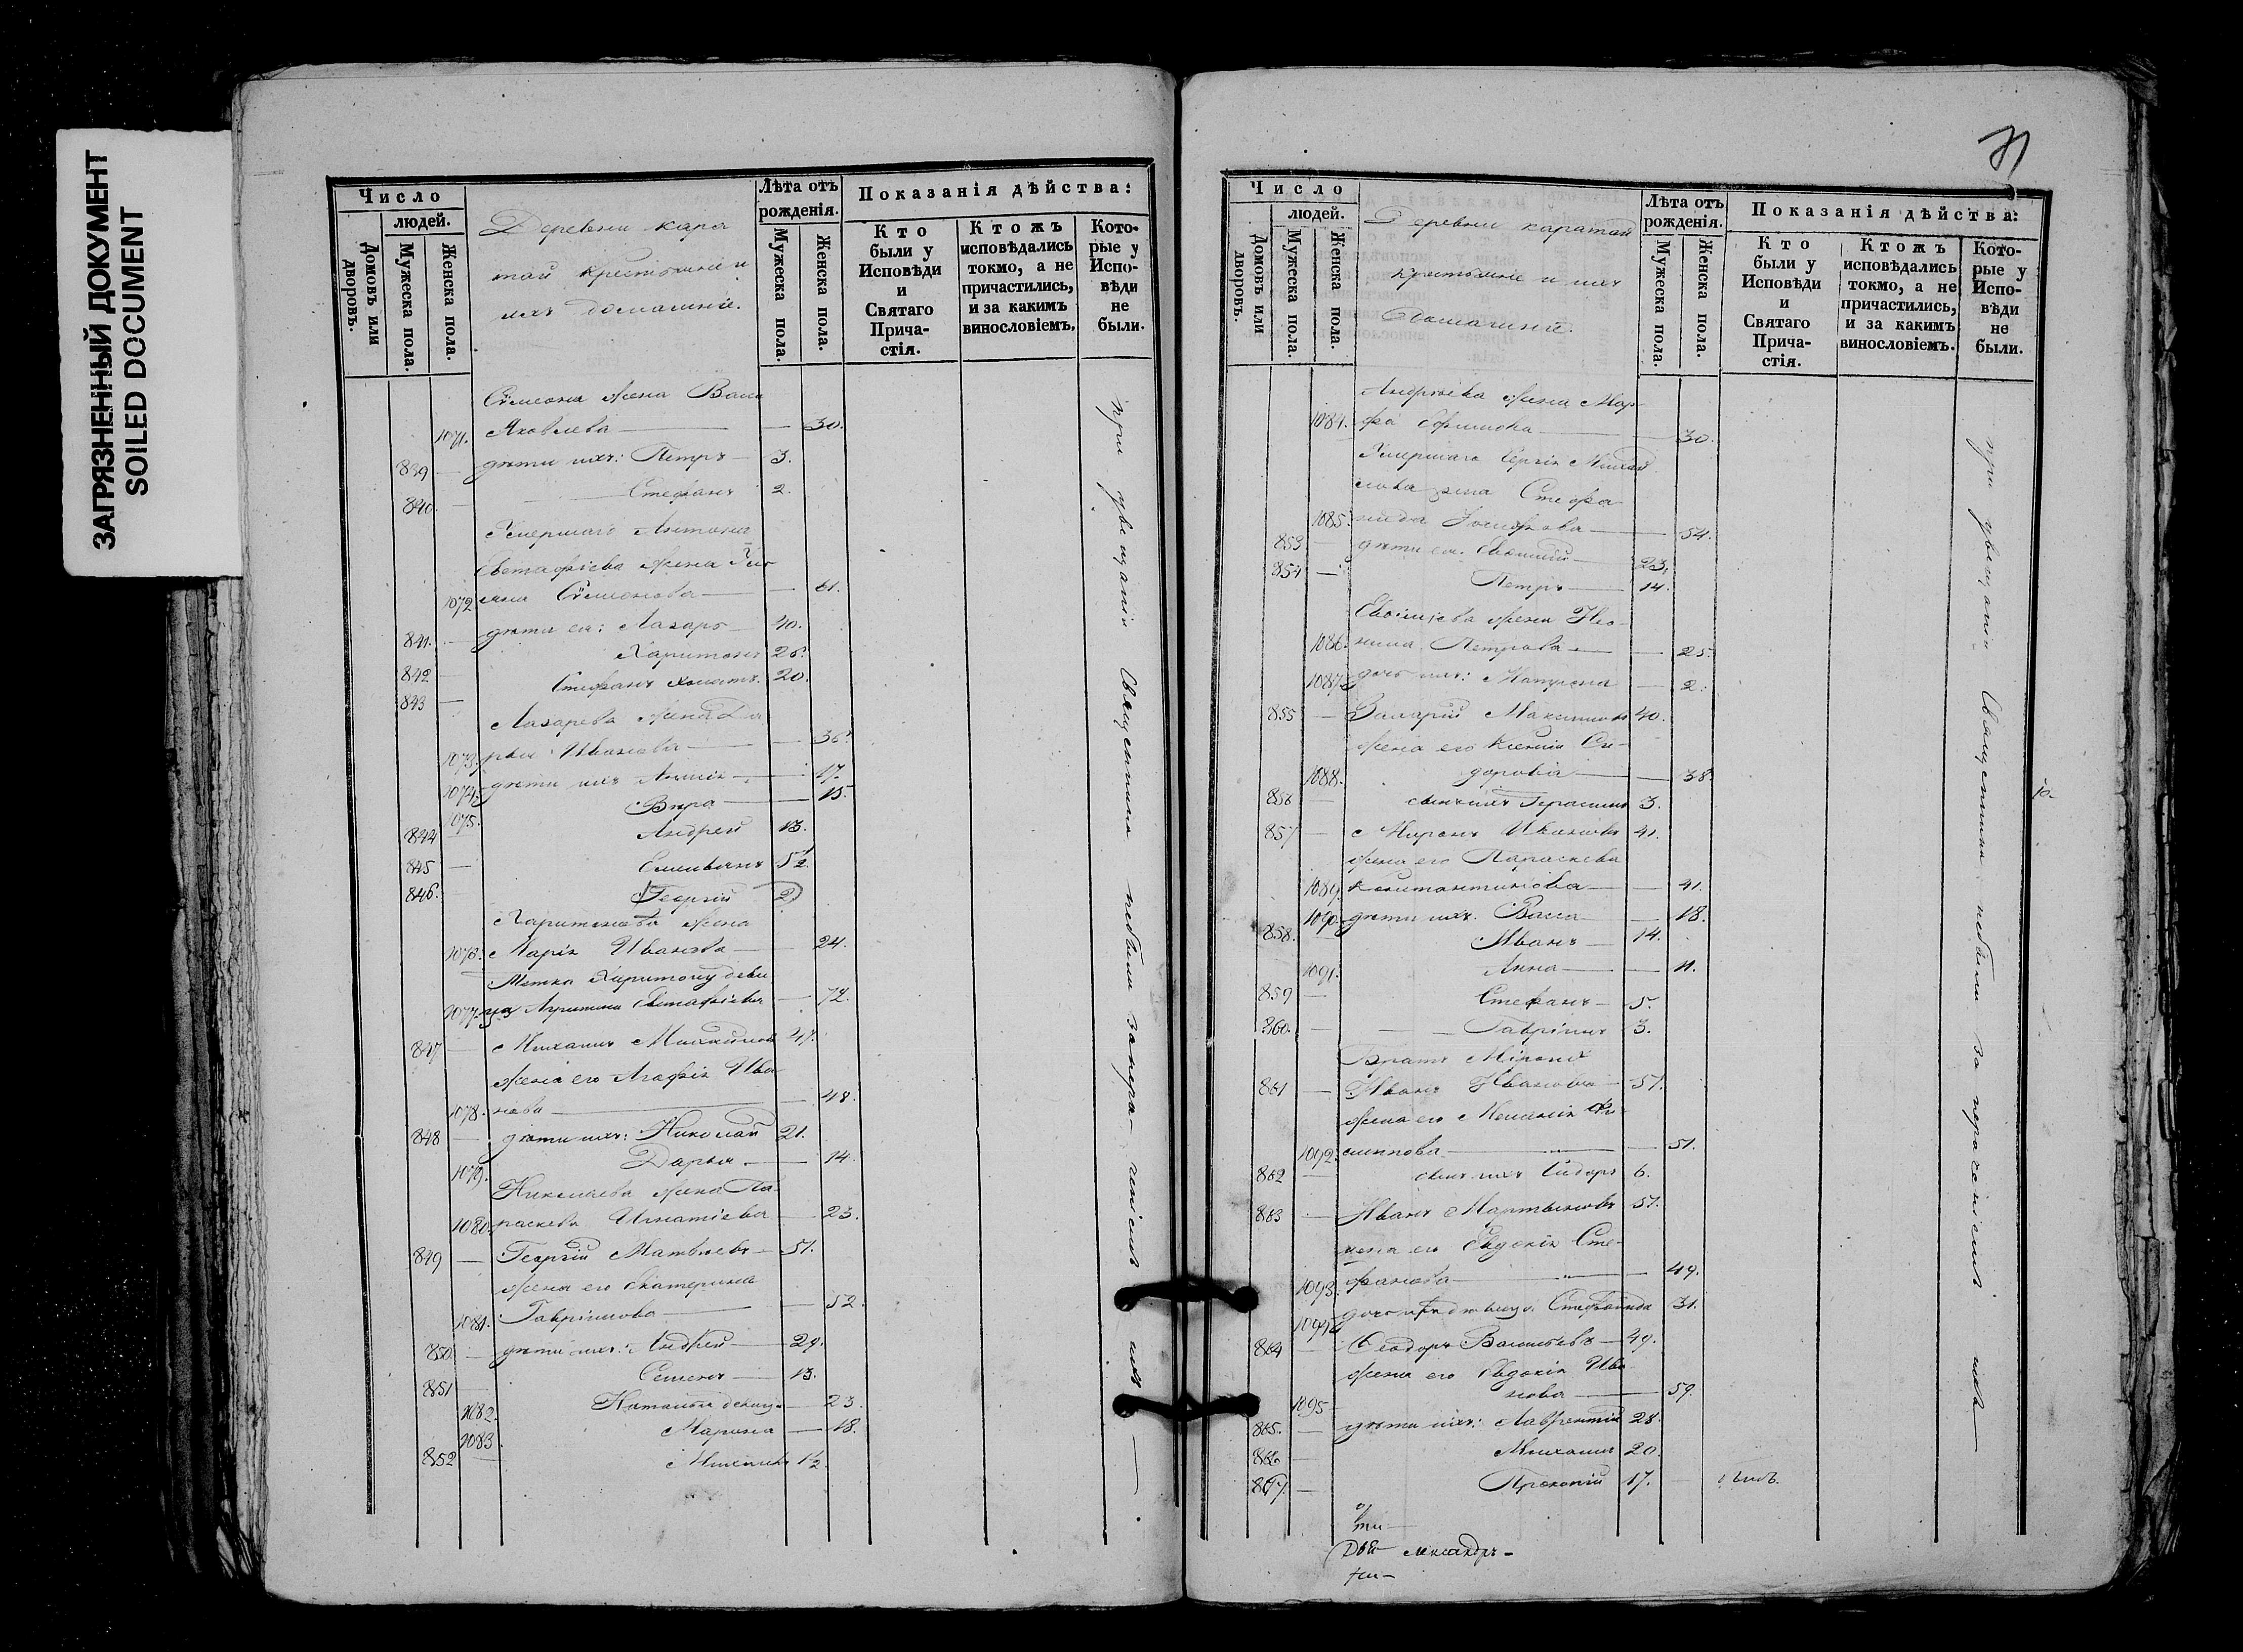 ЗАГРЯЗНЕННЫЙ ДОКУМЕНТ
SOILED DOCUMENT
Число
людей.
Домовъ или дворовъ.
Мужеска пола.
Женска пола.
Деревни кара
тай крестьяне и
ихъ домашніе.
Лѣта отъ
рожденія.
Мужеска пола.
Женска пола.
Показанія дѣйства:
Кто
были у
Исповѣди
и
Святаго
Прича-
стія.
Ктожъ
исповѣдались
токмо, а не
причастились,
и за какимъ
винословіемъ.
Кото-
рые у
Испо-
вѣди
не
были.
жена Васса
1071. Яковлева 30.
839 дѣти ихъ: Петръ 3.
840. Стефанъ 2.
Умершаго Антона
Евстафіева жена
1072 61.
841. дѣти ея: Лазарь 40.
842 Харитонъ 26.
843 Стефанъ холостъ. 20.
Лазарева жена Да
1073. рья Иванова 36.
1074. дѣти ихъ 17.
1075. Вѣра 15.
844 Андрей 13.
845 Емельянъ
846. Георгій 2
Харитонова жена
1076. Марія Иванова 24.
Тетка Харитону деви
1077. ца Евстафіева 72.
847 Михаилъ Михайловъ 47.
жена его Агафія Ива
1078. нова 48.
848 дѣти ихъ: Николай 21.
1079. Дарья 14.
Николаева жена Па
1080. раскева Игнатіева 23.
849 Георгій Матвѣевъ 51.
жена его Екатерина
1081. Гавріилова 52
850 дѣти ихъ: Андрей 29.
851 Семенъ 13.
1082. Наталья девица 23
1083. Марина 18.
852
при увещаніи Священника небыли за нера-ченіемъ ихъ
Число
людей.
Домовъ или дворовъ.
Мужеска пола.
Женска пола.
Деревни каратай
крестьяне и ихъ
домашніе.
Лѣта отъ
рожденія.
Мужеска пола.
Женска пола.
Показанія дѣйства:
Кто
были у
Исповѣди
и
Святаго
Прича-
стія.
Ктожъ
исповѣдались
токмо, а не
причастились,
и за какимъ
винословіемъ.
Кото-
рые у
Испо-
вѣди
не
были.
Андреева жена Мар-
1084. фа Ефимова 30.
Умершаго Сергія Михай
лова жена Стефа
1085. нида 54.
853 дѣти ея: 23.
854 Петръ 14.
жена Нео-
1086. нила Петрова 25.
1087. дочь ихъ: Матрона 2.
855 Максимовъ 40.
жена его Ксенія Си-
1088. дорова 38.
856 сынъ ихъ Герасимъ 3.
857 Миронъ Ивановъ 41.
жена его Параскева
1089. Константинова 41.
1090. дѣти ихъ: Васса 18.
858. Иванъ 14.
1091. Анна 11.
859 Стефанъ 5.
860. Гавріилъ 3.
Братъ Мирона
861 Иванъ Ивановъ 57.
жена его Меланія Фи-
1092. липпова 51.
862 сынъ ихъ Сидоръ 6.
863 Иванъ Мартыновъ 57.
жена его Евдокія Сте-
1093. фанова 49.
1094. дочь Стефанида 31.
864 Феодоръ Васильевъ 49.
жена его Евдокія Ива
1095 нова 59.
865. дѣти ихъ: Лаврентій 28.
866 Михаилъ 20.
867. Прокопій 17.
при увещаніи Священника небыли за нераченіемъ ихъ